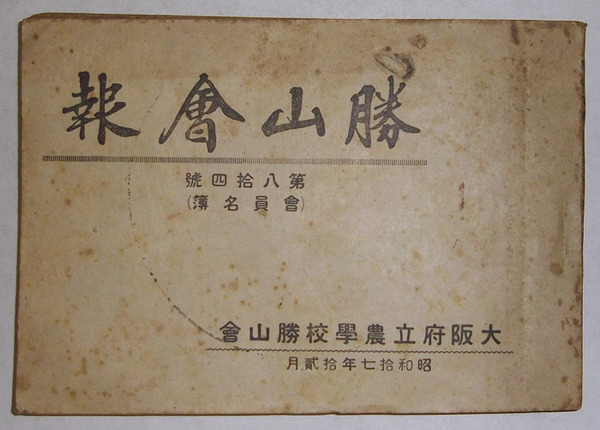 勝山會報
第八拾四號
(會員名簿)
大阪府立農學校勝山會
昭和拾七年拾貳月